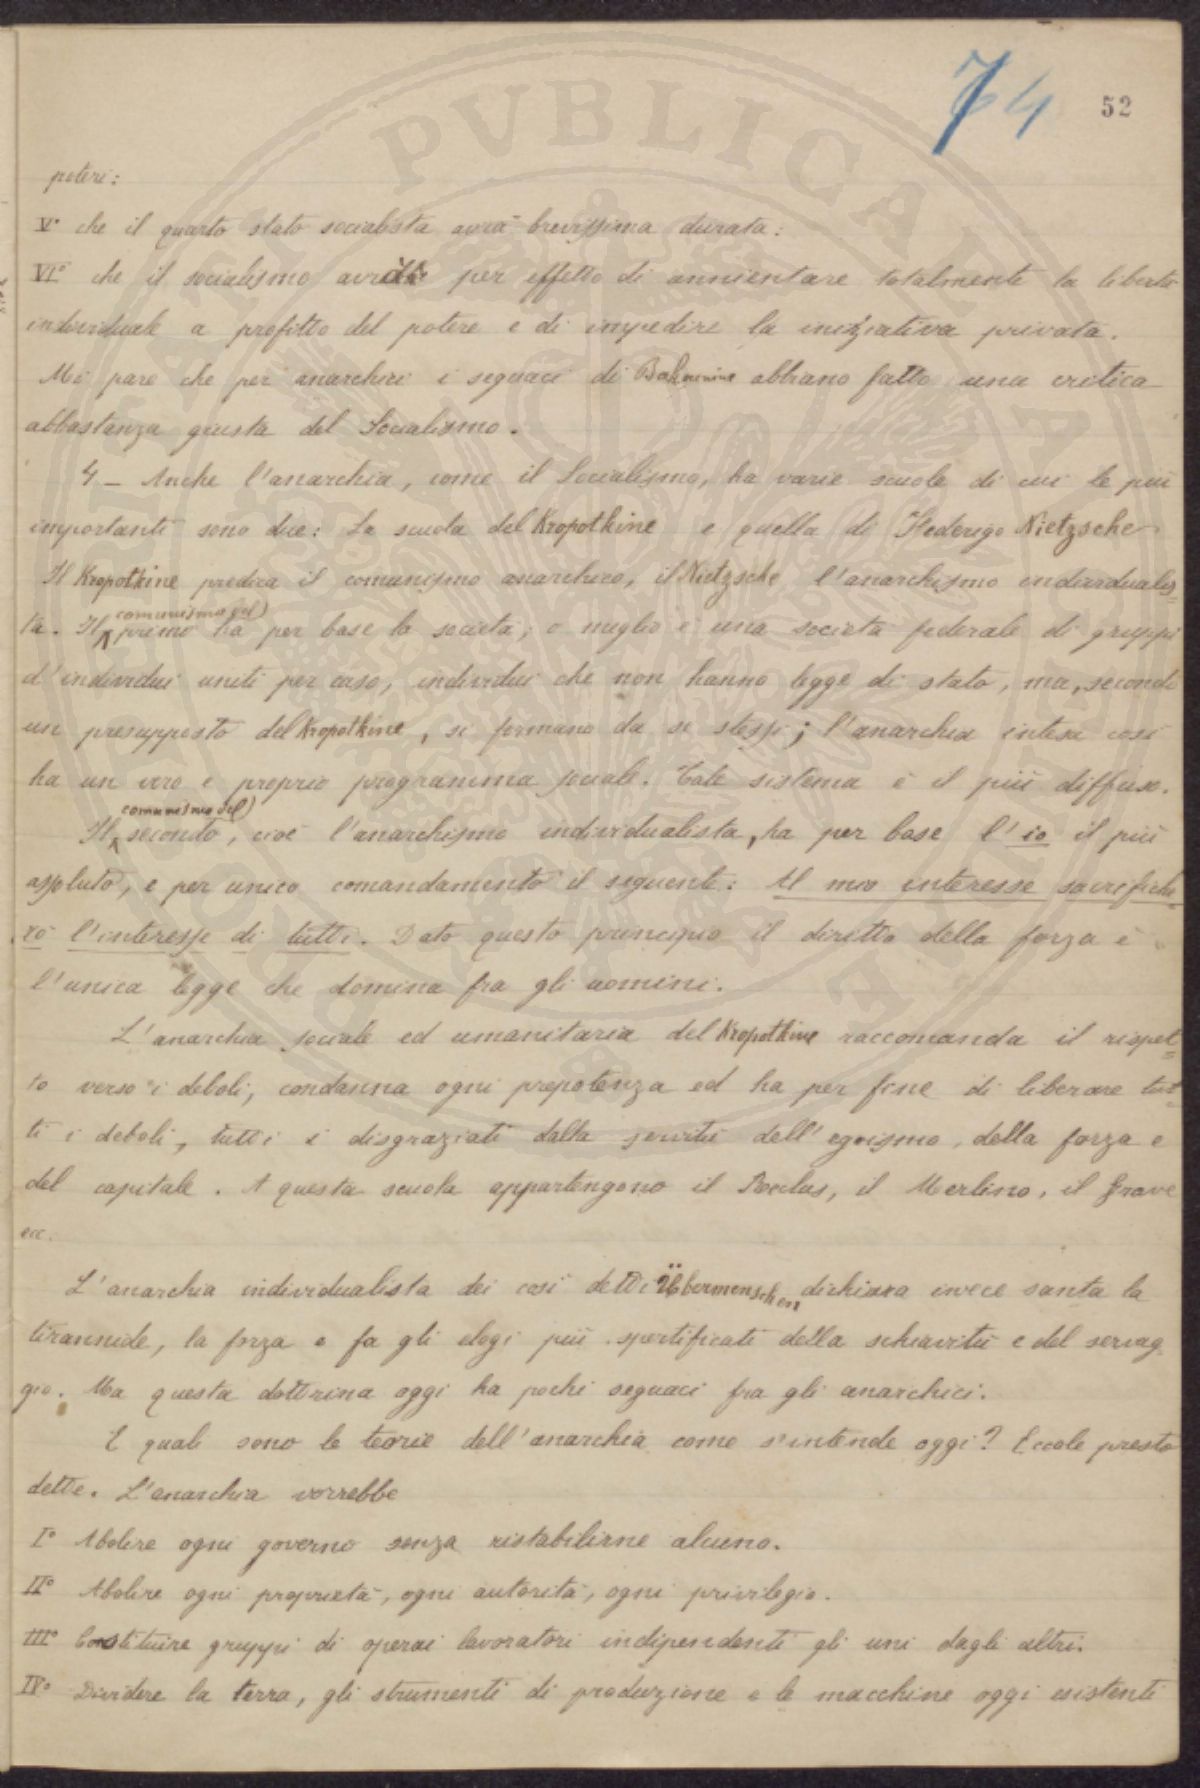 74 52
poteri:
V° che il quarto stato socialista avrà brevissima durata:
VI° che il socialismo avrà per effetto di annientare totalmente la libertà
individuale a profitto del potere e di impedire la iniziativa privata.
Mi pare che per anarchici i seguaci di Bakounine abbiano fatto una critica
abbastanza giusta del Socialismo.
4 — Anche l'anarchia, come il Socialismo, ha varie scuole di cui le più
importanti sono due: La scuola del Kropotkine e quella di Federigo Nietzsche
Il Kropotkine predica il comunismo anarchico, il Nietzsche l'anarchismo individualis=
comunismo del)
ta. Il primo ha per base la società; o meglio è una società federale di gruppi
d'individui uniti per caso, individui che non hanno legge di stato, ma, secondo
un presupposto del Kropotkine, si formano da se stessi; l'anarchia intesa così
ha un vero e proprio programma sociale. Tale sistema è il più diffuso.
comunismo del)
Il secondo, cioè l'anarchismo individualista, ha per base l'io il più
assoluto, e per unico comandamento il seguente: Al mio interesse sacrifiche=
rò l'interesse di tutti. Dato questo principio il diritto della forza è
l'unica legge che domina fra gli uomini.
L'anarchia sociale ed umanitaria del Kropotkine raccomanda il rispet=
to verso i deboli, condanna ogni prepotenza ed ha per fine di liberare tut=
ti i deboli, tutti i disgraziati dalla servitù dell'egoismo, della forza e
del capitale. A questa scuola appartengono il Reclus, il Merlino, il Grave
ecc.
L'anarchia individualista dei così detti Übermenschen dichiara invece santa la
tirannide, la forza e fa gli elogi più spertificati della schiavitù e del servag=
gio. Ma questa dottrina oggi ha pochi seguaci fra gli anarchici.
E quali sono le teorie dell'anarchia come s'intende oggi? Eccole presto
dette. L'anarchia vorrebbe
I° Abolire ogni governo senza ristabilirne alcuno.
II° Abolire ogni proprietà, ogni autorità, ogni privilegio.
III° Costituire gruppi di operai lavoratori indipendenti gli uni dagli altri.
IV° Dividere la terra, gli strumenti di produzione e le macchine oggi esistenti